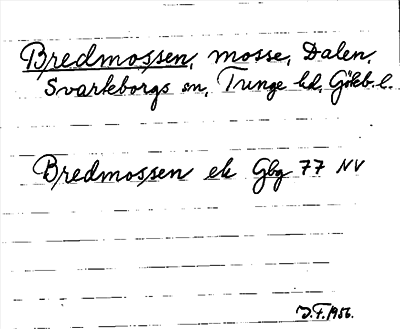 Bredmossen, mosse, Dalen,
Svarteborgs sn, Tunge hd, Göteb. l.
Bredmossen ek Gbg 77 NV
J.F. 1956.